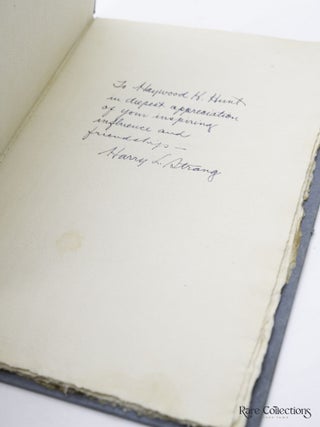 To Haywood H. Hunt
in deepest appreciation
of your inspiring
influence and
friendships —
Harry L. Strong
Rare Collections